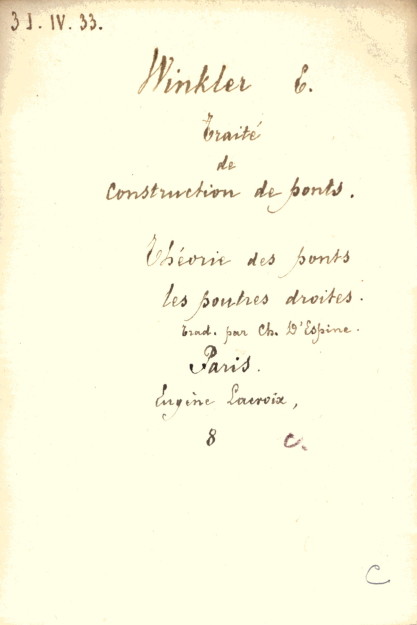 31. IV. 33.
Winkler E.
Traité
de
Construction de ponts.
Théorie des ponts
les poutres droites.
trad. par Ch. D'Espine.
Paris.
Eugène Lacroix,
8 C.
C